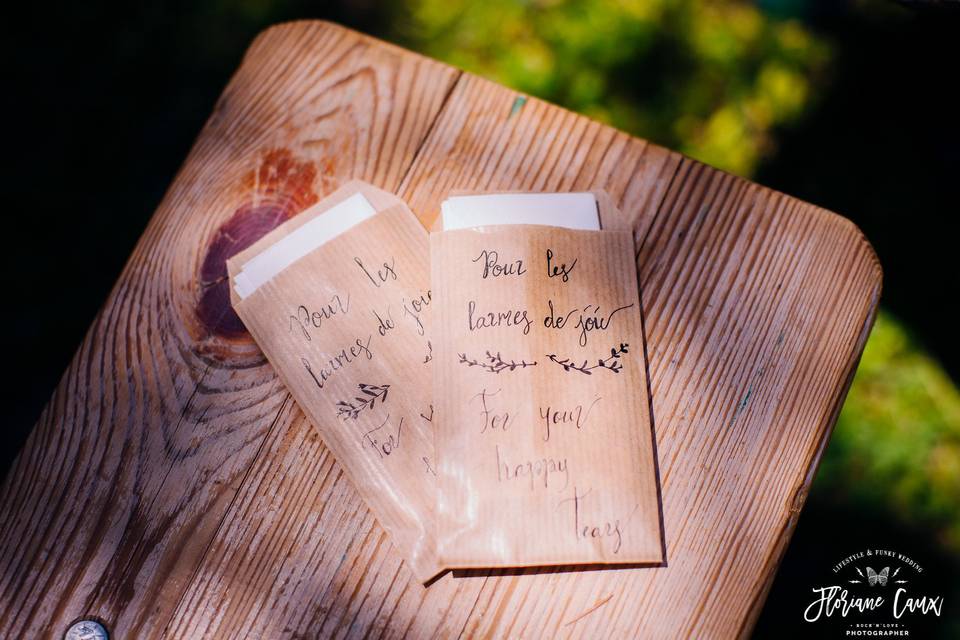 Pour les
larmes de joie
For
Pour les
larmes de joie
For your
happy
Tears
LIFESTYLE & FUNKY WEDDING
Floriane Caux
ROCK'N'LOVE
PHOTOGRAPHER